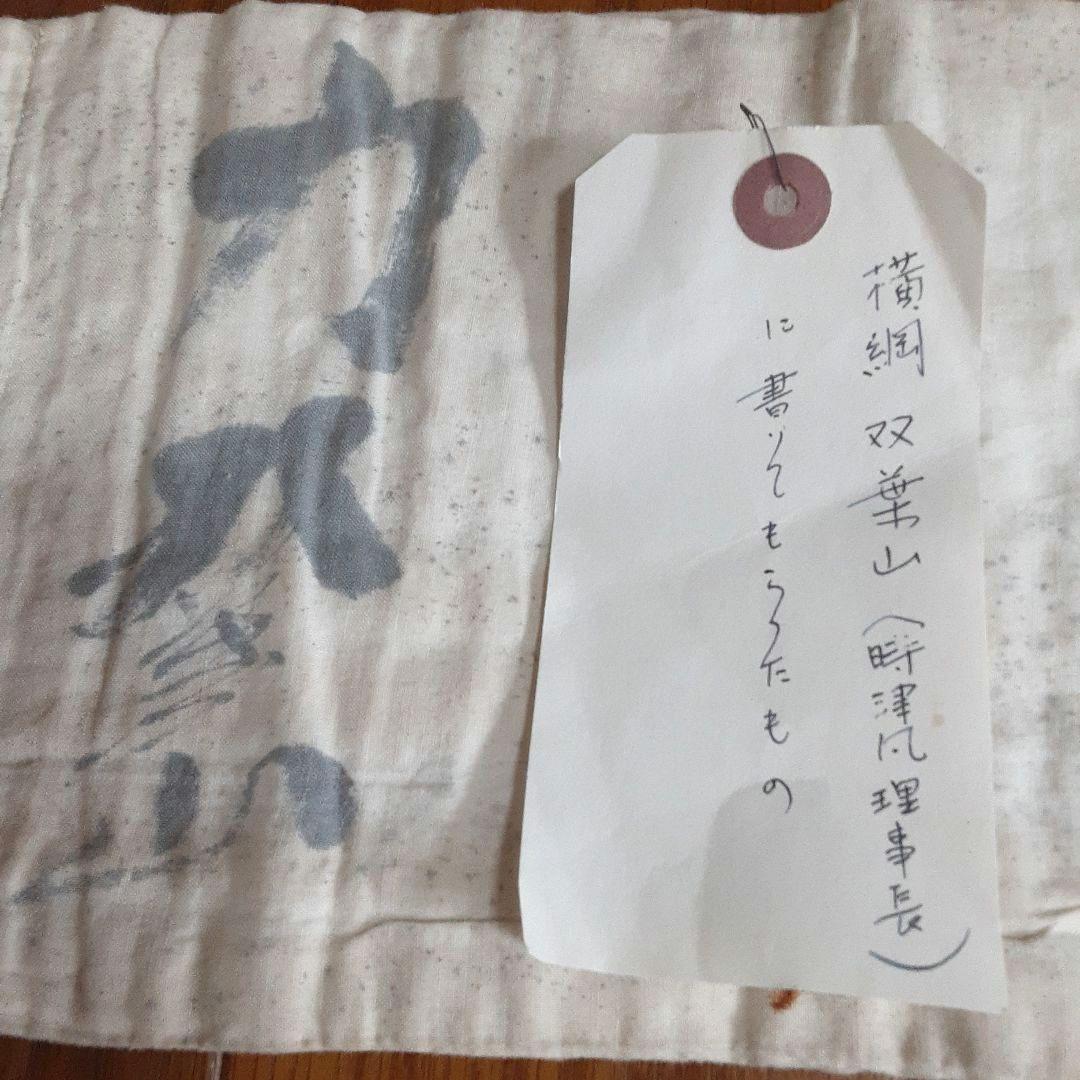 横綱 双葉山（時津風理事長）
に書いてもらったもの
力